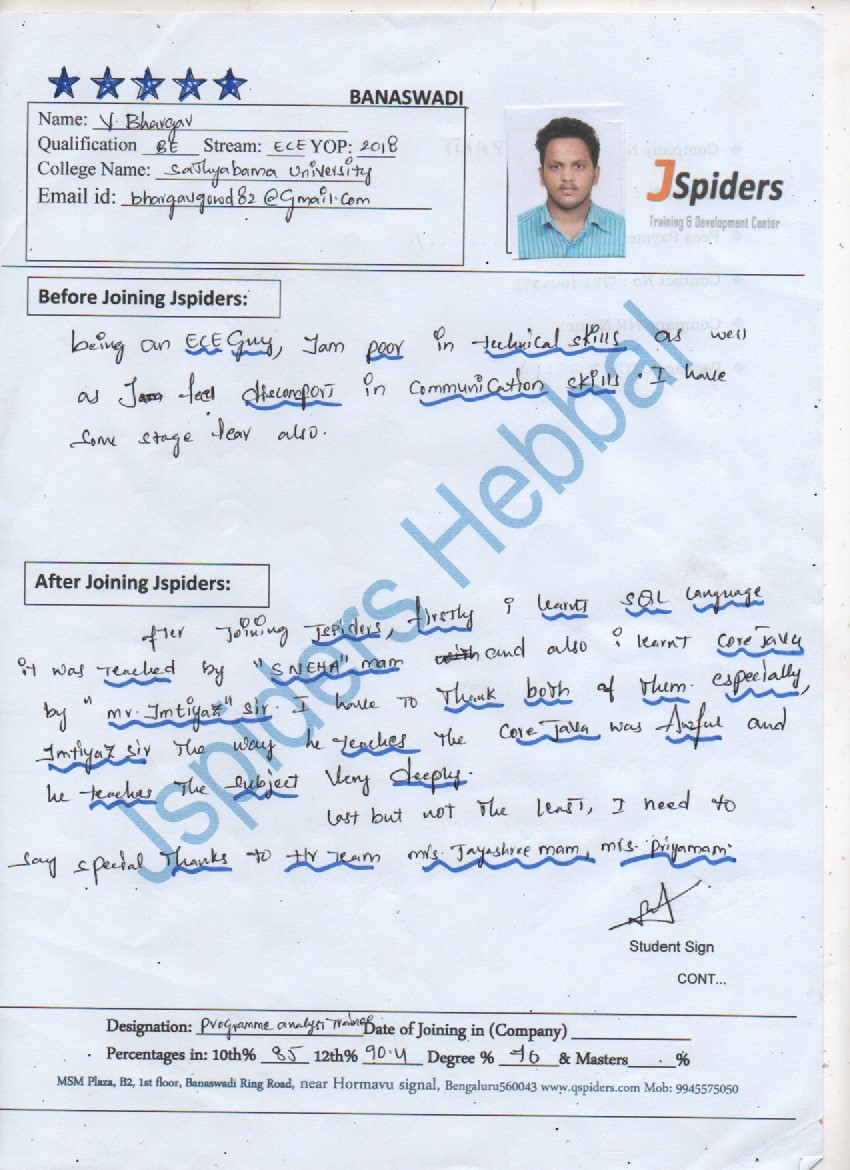 BANASWADI
Name: V. Bhargav
Qualification BE Stream: ECE YOP: 2018
College Name: Sathyabama University
Email id: bhargavgowd82@gmail.com
JSpiders
Training & Development Center
Before Joining Jspiders:
being an ECE Guy, I am poor in technical skills as well
as I am feel discomport in communication skills. I have
some stage fear also.
After Joining Jspiders:
after joining Jspiders, firstly i learnt SQL language
it was teached by "SNEHA" mam and also i learnt core Java
by "mr. Imtiyaz" sir. I have to thank both of them. especially,
Imtiyaz sir the way he teaches the core Java was Aweful and
he teaches the subject very deeply.
last but not the least, I need to
say special thanks to Hr team mrs. Jayashree mam, mrs. priyamam.
Jspiders Hebbal
Student Sign
CONT...
Designation: programme analyst Trainee Date of Joining in (Company)
Percentages in: 10th% 85 12th% 90.4 Degree % 76 & Masters . %
MSM Plaza, B2, 1st floor, Banaswadi Ring Road, near Hormavu signal, Bengaluru560043 www.qspiders.com Mob: 9945575050